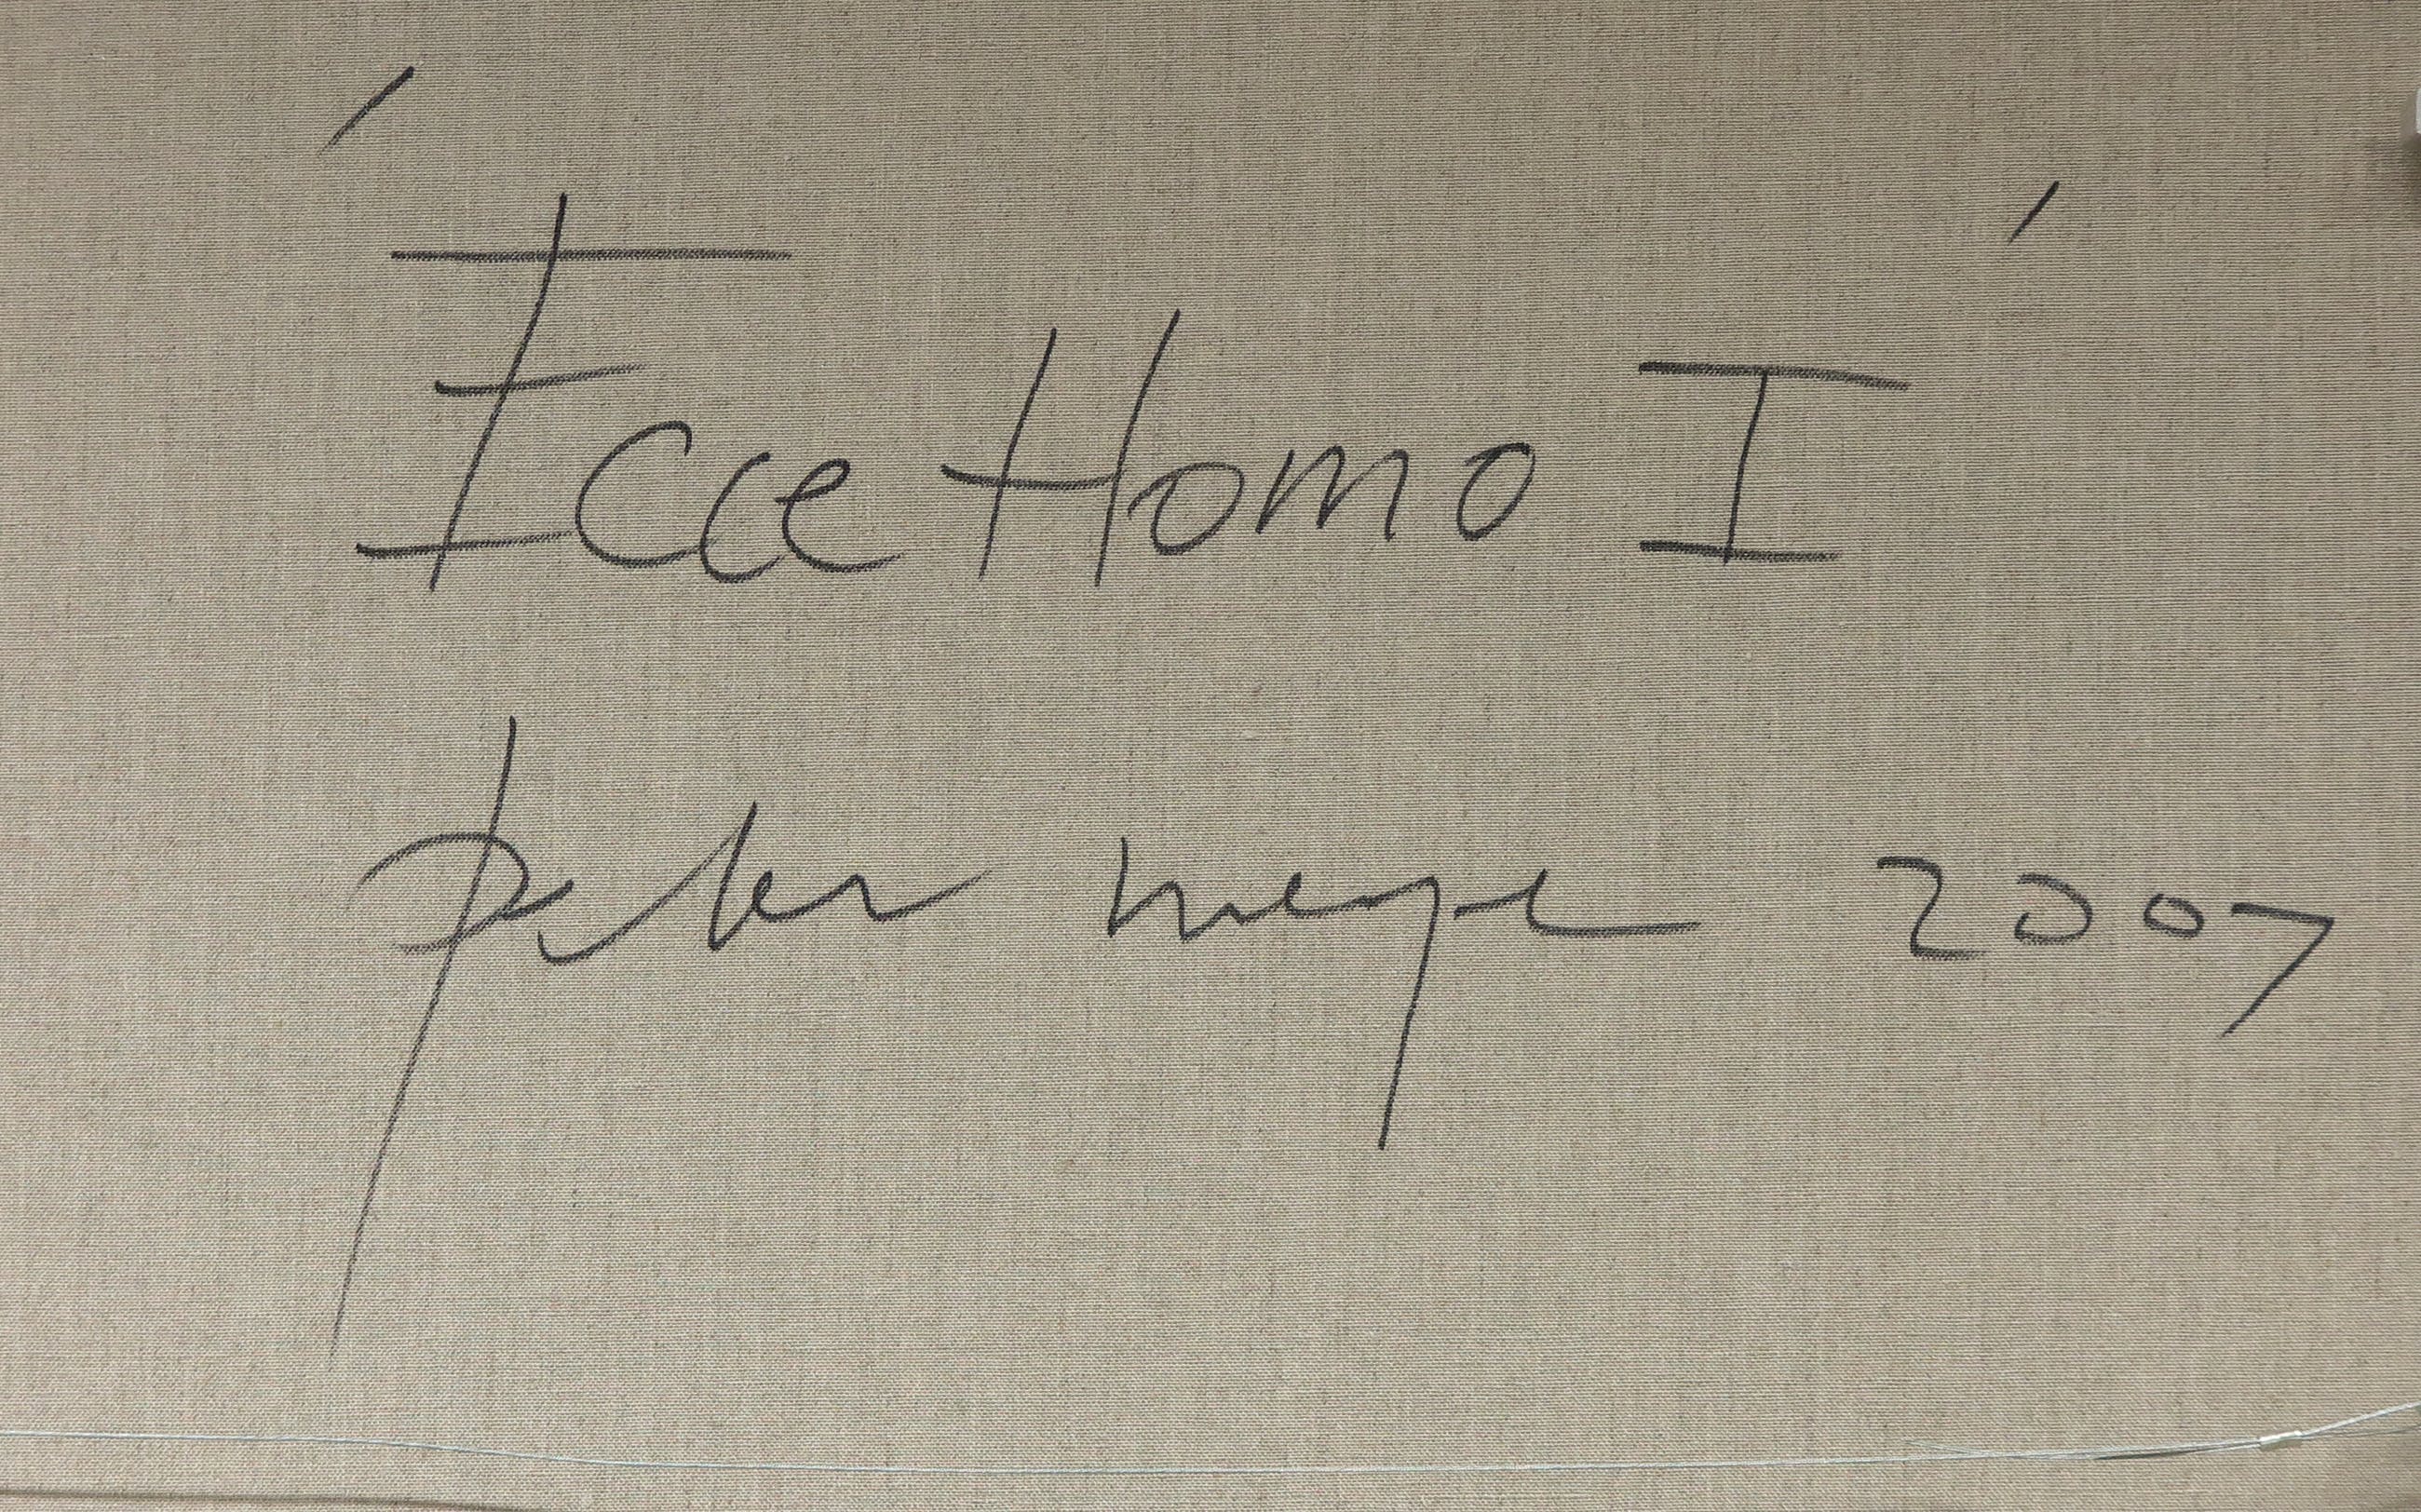 'Ecce Homo I'
peter meyer 2007